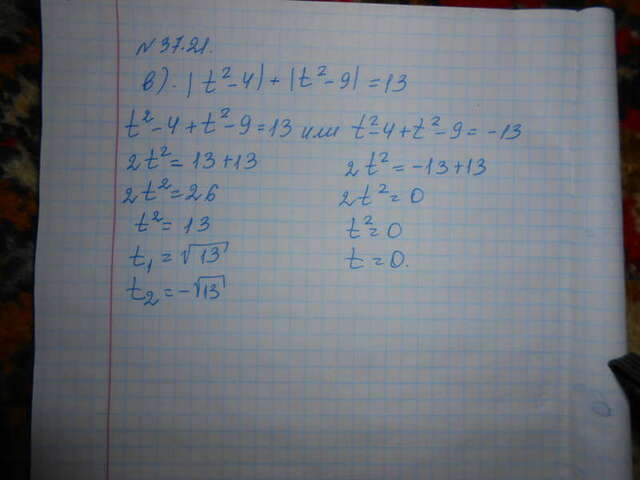 № 37.21.
в). |t²-4|+|t²-9|=13
t²-4+t²-9=13 или t²-4+t²-9=-13
2t²=13+13 2t²=-13+13
2t²=26 2t²=0
t²=13 t²=0
t₁=√13 t=0.
t₂=-√13